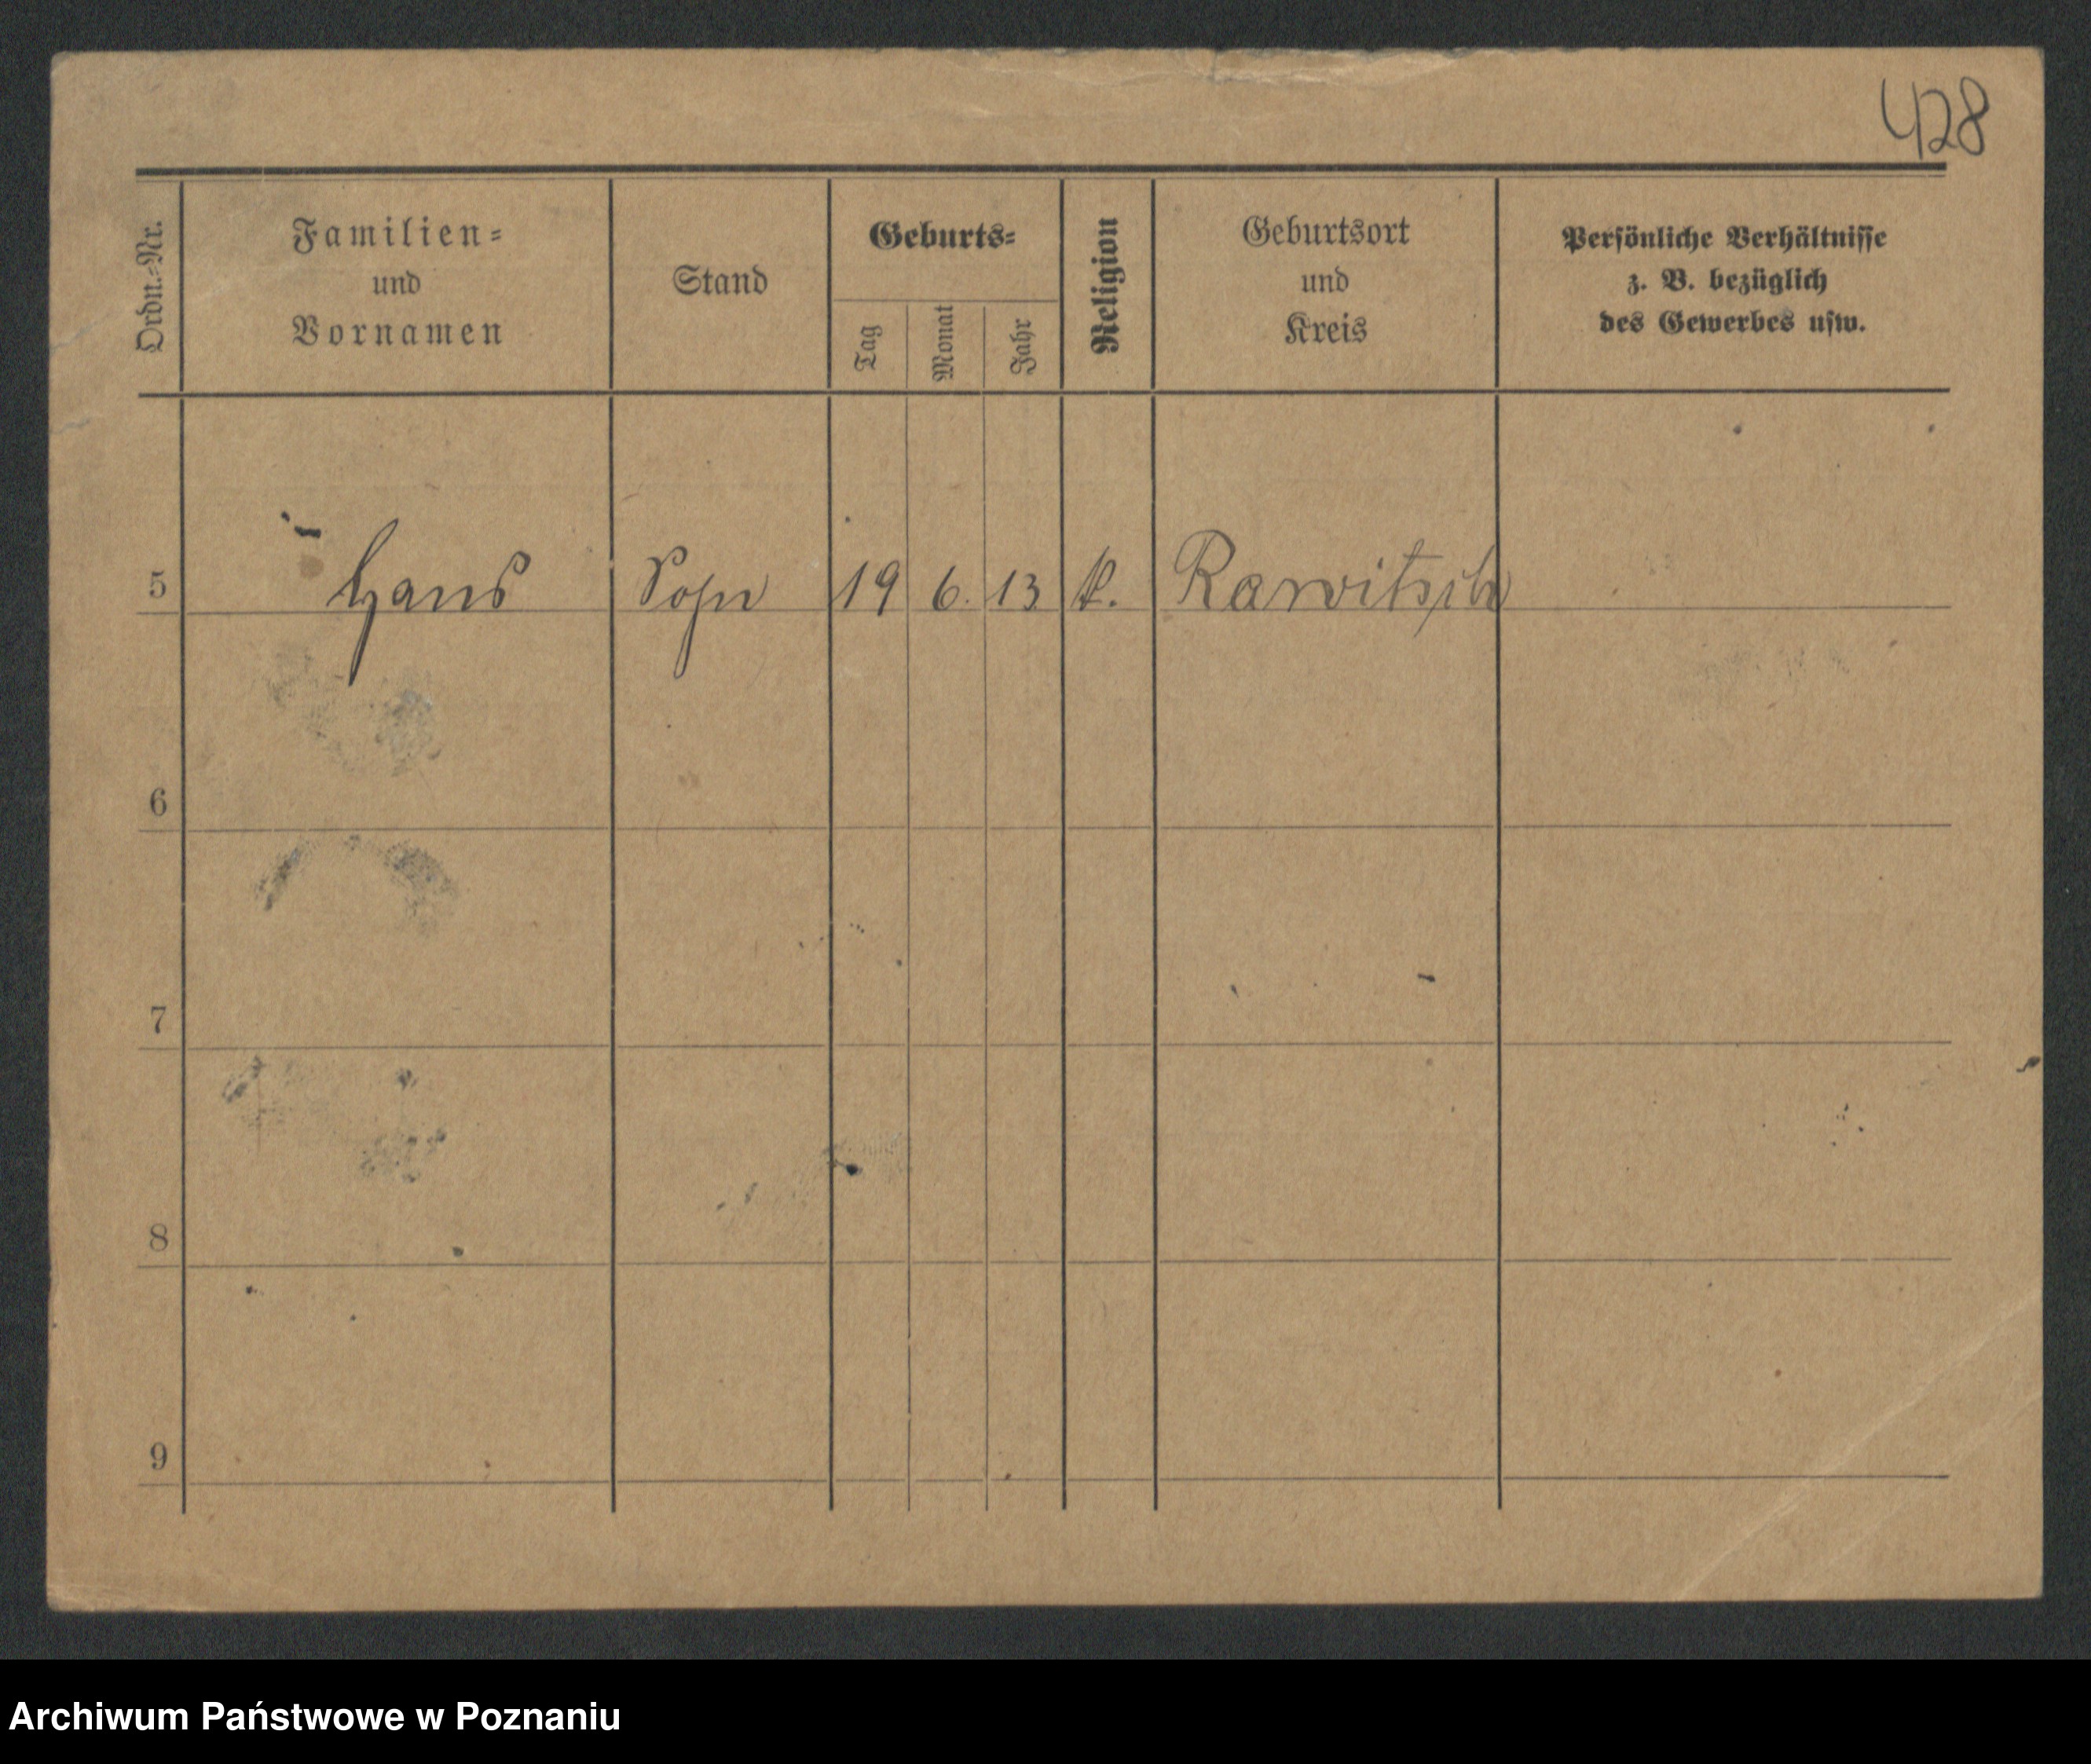 428
Ordn.-Nr.
Familien-
und
Vornamen
Stand
Geburts-
Tag
Monat
Jahr
Religion
Geburtsort
und
Kreis
Persönliche Verhältnisse
z. B. bezüglich
des Gewerbes usw.
5 Hans Sohn 19 6. 13 k. Rawitsch
6
7
8
9
Archiwum Państwowe w Poznaniu